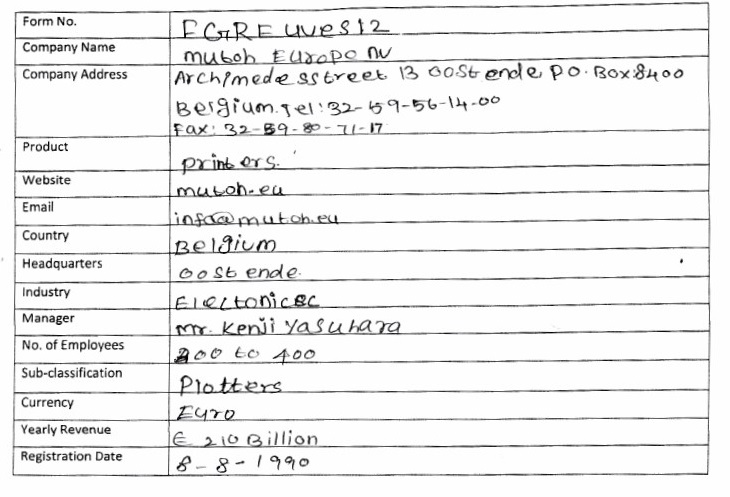 Form No. FGREUVES12
Company Name Mutoh Europe NV
Company Address Archimedesstreet 13 Oostende, P.O. Box:8400
Belgium. Tel: 32-59-56-14-00
Fax: 32-59-80-71-17
Product printers.
Website mutoh.eu
Email info@mutoh.eu
Country Belgium
Headquarters Oostende.
Industry Electonicsc
Manager Mr. Kenji Yasuhara
No. of Employees 200 to 400
Sub-classification Plotters
Currency Euro
Yearly Revenue € 210 Billion
Registration Date 8-8-1990